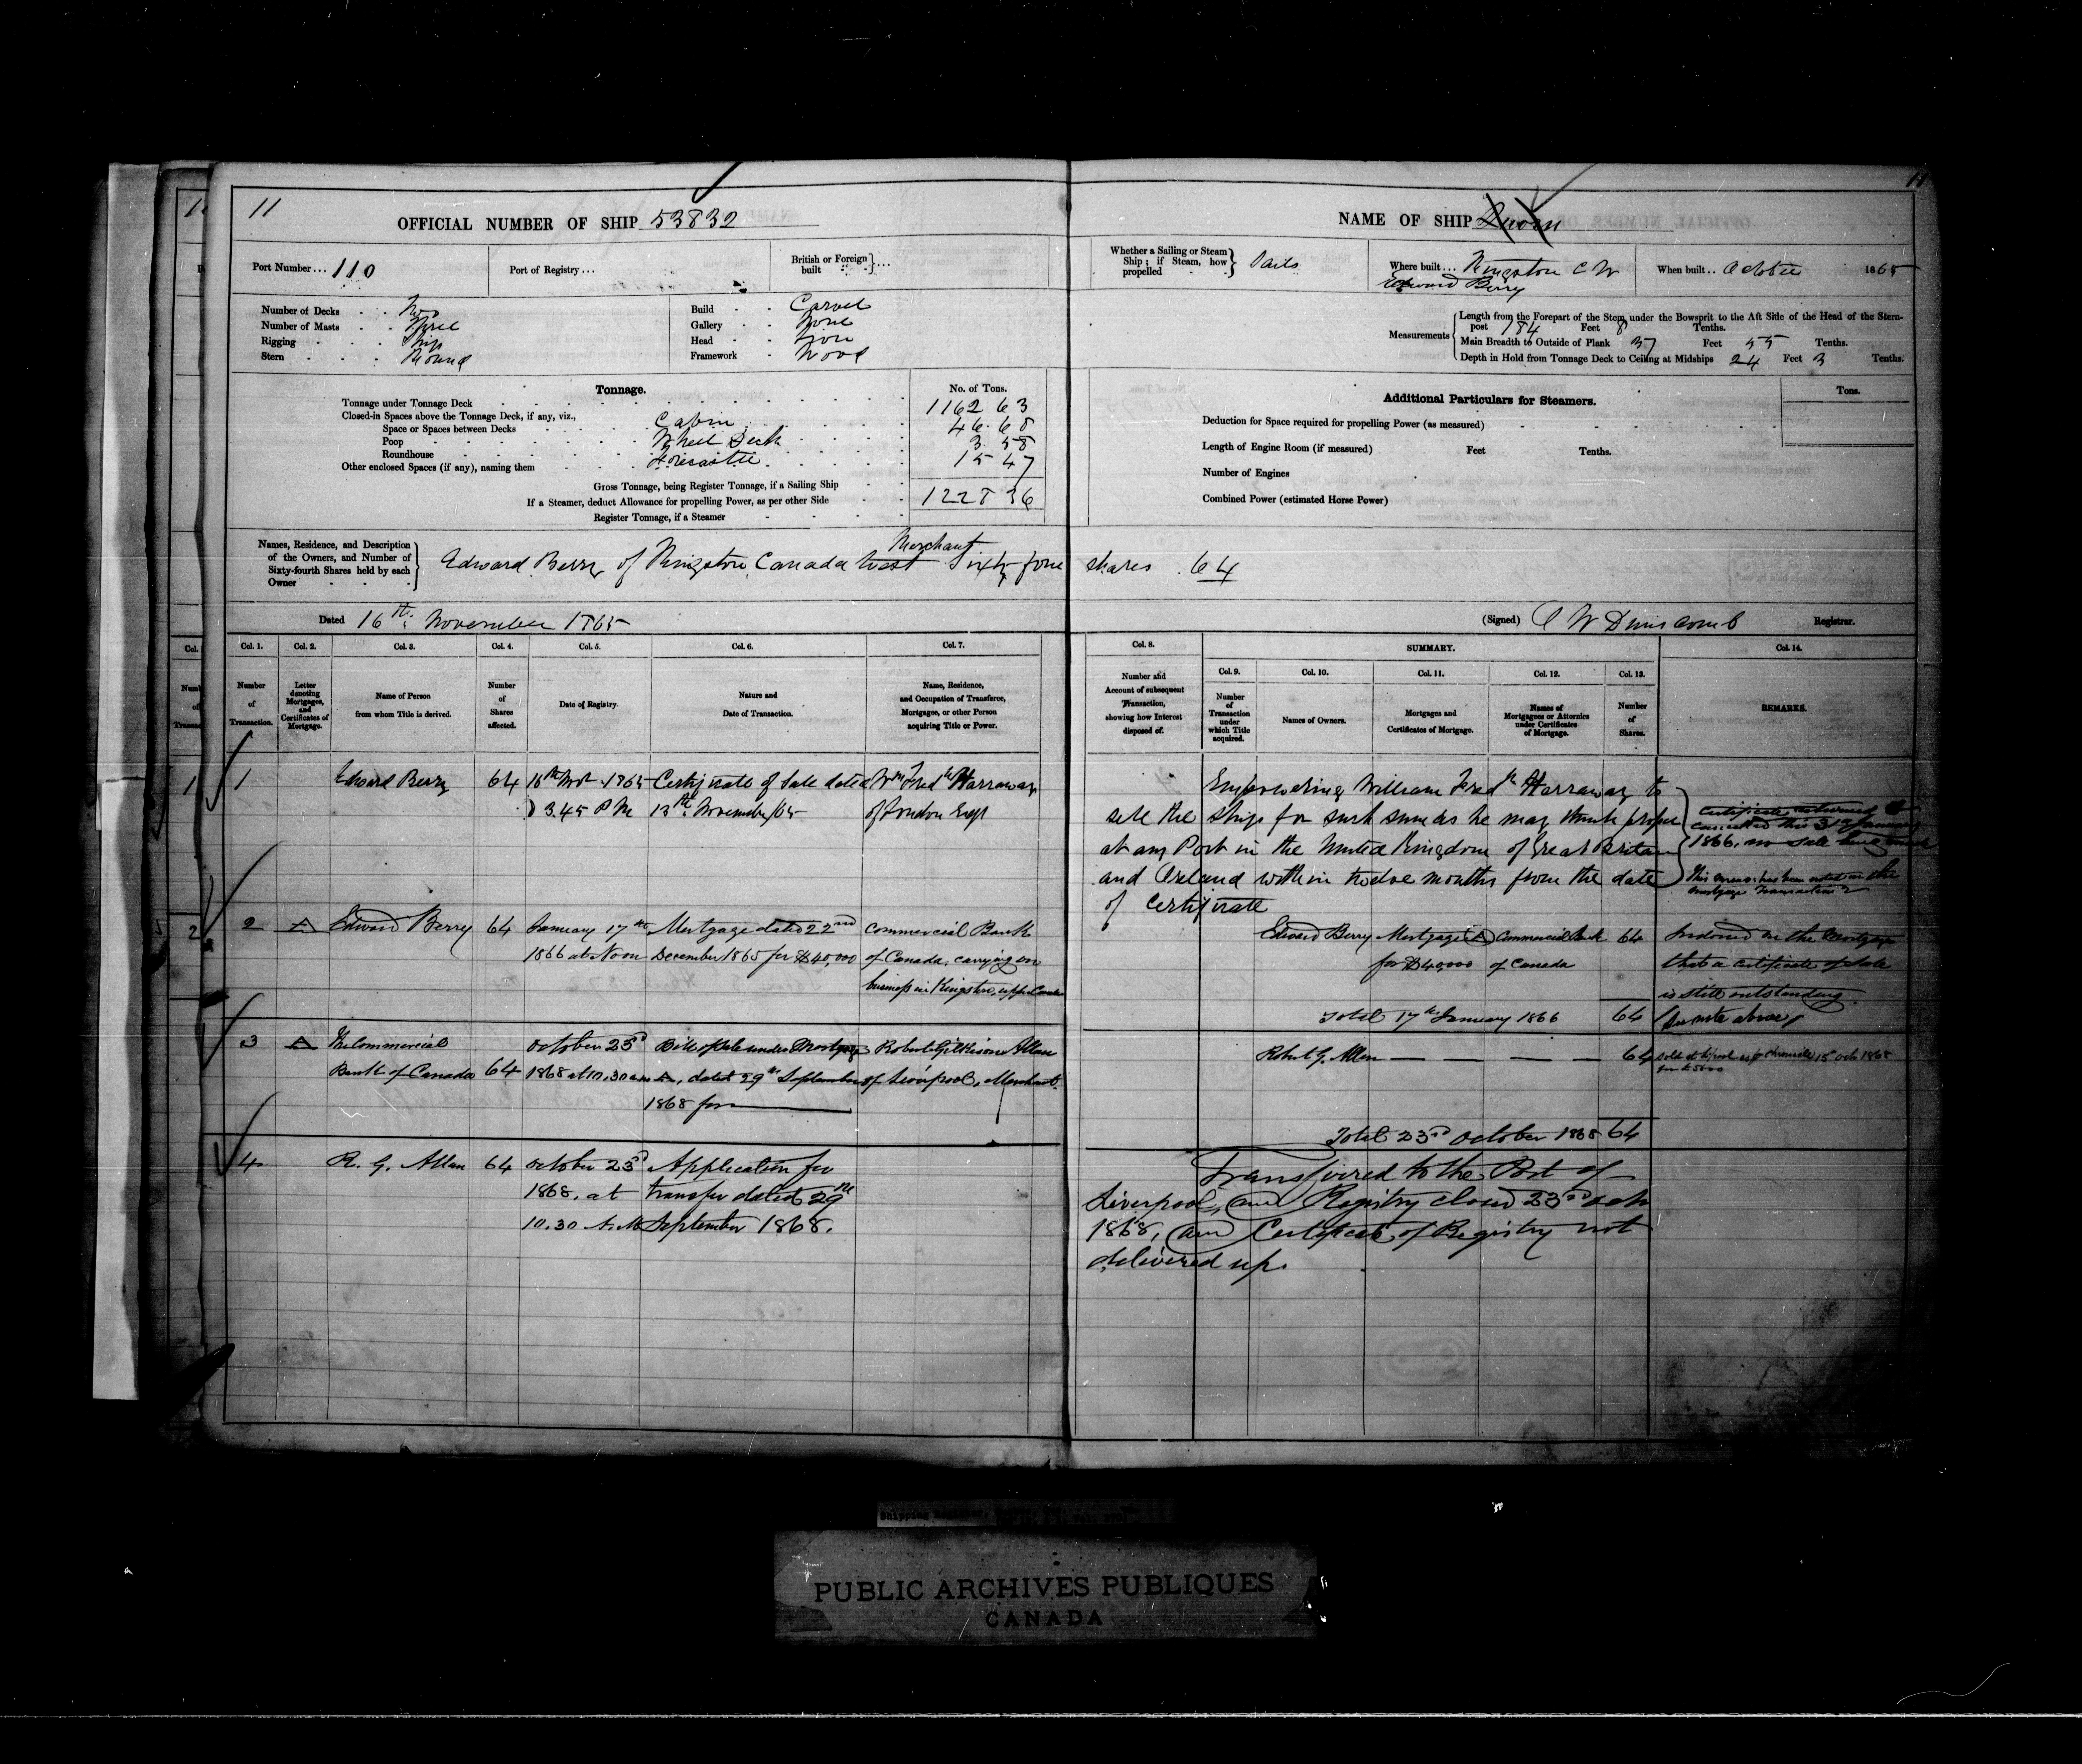 11
OFFICIAL NUMBER OF SHIP 53832
Port Number... 110
Port of Registry...
British or Foreign built
Number of Decks Two
Number of Masts Three
Rigging Ship
Stern Round
Build Carvel
Gallery None
Head
Framework Wood
Tonnage.
No. of Tons.
Tonnage under Tonnage Deck 1162 63
Closed-in Spaces above the Tonnage Deck, if any, viz.,
Space or Spaces between Decks Cabin 46.68
Poop Wheel Deck 3.58
Roundhouse Forecastle 15 47
Other enclosed Spaces (if any), naming them
Gross Tonnage, being Register Tonnage, if a Sailing Ship
If a Steamer, deduct Allowance for propelling Power, as per other Side 1228 36
Register Tonnage, if a Steamer
Names, Residence, and Description of the Owners, and Number of Sixty-fourth Shares held by each Owner
Merchant
Edward Berry of Kingston, Canada West Sixty four shares 64
Dated 16th November 1865
Col. 1. Col. 2. Col. 3. Col. 4. Col. 5. Col. 6. Col. 7.
Number of Transaction.
Letter denoting Mortgages, and Certificates of Mortgage.
Name of Person from whom Title is derived.
Number of Shares affected.
Date of Registry.
Nature and Date of Transaction.
Name, Residence, and Occupation of Transferee, Mortgagee, or other Person acquiring Title or Power.
1 Edward Berry 64 16th Nov 1865 Certificate of Sale dated Wm Fredk Harraway
3.45 P M 13th November/65 of London Engd
2 A Edward Berry 64 January 17th Mortgage dated 22nd Commercial Bank
1866 at Noon December 1865 for $40,000 of Canada, carrying on
business in Kingston, upper Canada
3 A The Commercial October 23d Bill of Sale under Mortgage Robert Gilkison Allan
Bank of Canada 64 1868 at 10,30 am A, dated 29th September of Liverpool, Merchant.
1868 for
4 R. G. Allan 64 October 23d Application for
1868, at transfer dated 29th
10.30 A.M. September 1868.
NAME OF SHIP
Whether a Sailing or Steam Ship; if Steam, how propelled Sails
Where built... Kingston C W
Edward Berry
When built.. October 1865
Measurements
Length from the Forepart of the Stem under the Bowsprit to the Aft Side of the Head of the Stern-post 184 Feet 8 Tenths.
Main Breadth to Outside of Plank 37 Feet 55 Tenths.
Depth in Hold from Tonnage Deck to Ceiling at Midships 24 Feet 3 Tenths.
Additional Particulars for Steamers.
Tons.
Deduction for Space required for propelling Power (as measured)
Length of Engine Room (if measured) Feet Tenths.
Number of Engines
Combined Power (estimated Horse Power)
(Signed) J W Dunscomb Registrar.
Col. 8. SUMMARY. Col. 14.
Col. 9. Col. 10. Col. 11. Col. 12. Col. 13.
Number and Account of subsequent Transaction, showing how Interest disposed of.
Number of Transaction under which Title acquired.
Names of Owners.
Mortgages and Certificates of Mortgage.
Names of Mortgagees or Attornies under Certificates of Mortgage.
Number of Shares.
REMARKS.
Empowering William Fredk Harraway to
sell the ship for such sum as he may think proper
at any Port in the United Kingdom of Great Britain
and Ireland within twelve months from the date
of Certificate
Certificate returned &
cancelled this 31st January
1866, no sale being made
Edward Berry Mortgage A Commercial Bank 64
for $40,000 of Canada
Indorsed on the Mortgage
that a Certificate of Sale
is still outstanding.
See note above
Total 17th January 1866 64
Robert G. Allan 64
Total 23rd October 1868 64
Transferred to the Port of
Liverpool, and Registry closed 23rd Octr
1868, and Certificate of Registry not
delivered up.
PUBLIC ARCHIVES PUBLIQUES
CANADA